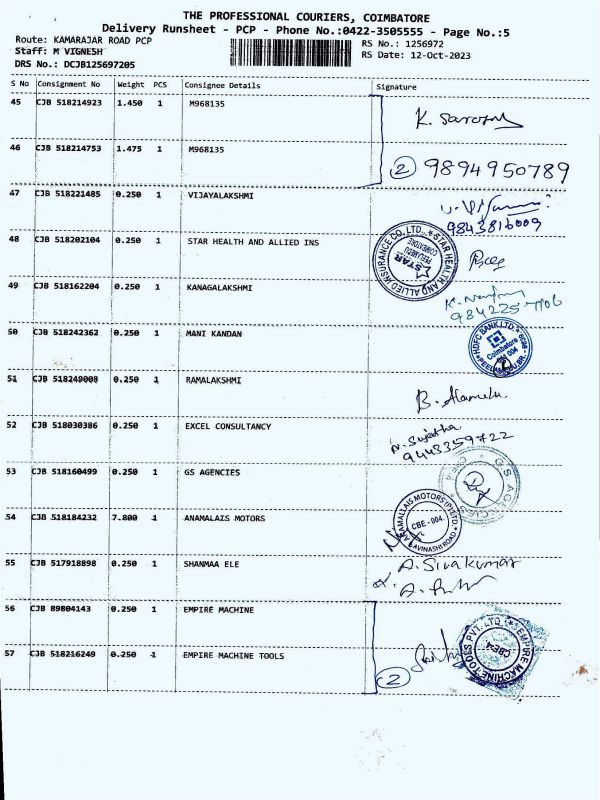 THE PROFESSIONAL COURIERS, COIMBATORE
Delivery Runsheet - PCP - Phone No.:0422-3505555 - Page No.:5
Route: KAMARAJAR ROAD PCP RS No.: 1256972
Staff: M VIGNESH RS Date: 12-Oct-2023
DRS No.: DCJB125697205
S No Consignment No Weight PCS Consignee Details Signature
45 CJB 518214923 1.450 1 M968135
K. Saros
46 CJB 518214753 1.475 1 M968135
2 9894950789
47 CJB 518221485 0.250 1 VIJAYALAKSHMI
9843816009
48 CJB 518202104 0.250 1 STAR HEALTH AND ALLIED INS
STAR HEALTH AND ALLIED INSURANCE CO. LTD.
STAR
PEELAMEDU
COIMBATORE
49 CJB 518162204 0.250 1 KANAGALAKSHMI
50 CJB 518242362 0.250 1 MANI KANDAN
HDFC BANK LTD.
Coimbatore
51 CJB 518249008 0.250 1 RAMALAKSHMI
B. Alamelu
52 CJB 518030386 0.250 1 EXCEL CONSULTANCY
N. Sujatha
9443359722
53 CJB 518160499 0.250 1 GS AGENCIES
G S AGENCIES
54 CJB 518184232 7.800 1 ANAMALAIS MOTORS
ANAMALLAIS MOTORS (P) LTD
CBE-004.
AVINASHI ROAD
55 CJB 517918898 0.250 1 SHANMAA ELE
A. Sivakumar
56 CJB 89804143 0.250 1 EMPIRE MACHINE
EMPIRE MACHINE TOOLS PVT. LTD
CBE-4
57 CJB 518216249 0.250 1 EMPIRE MACHINE TOOLS
2